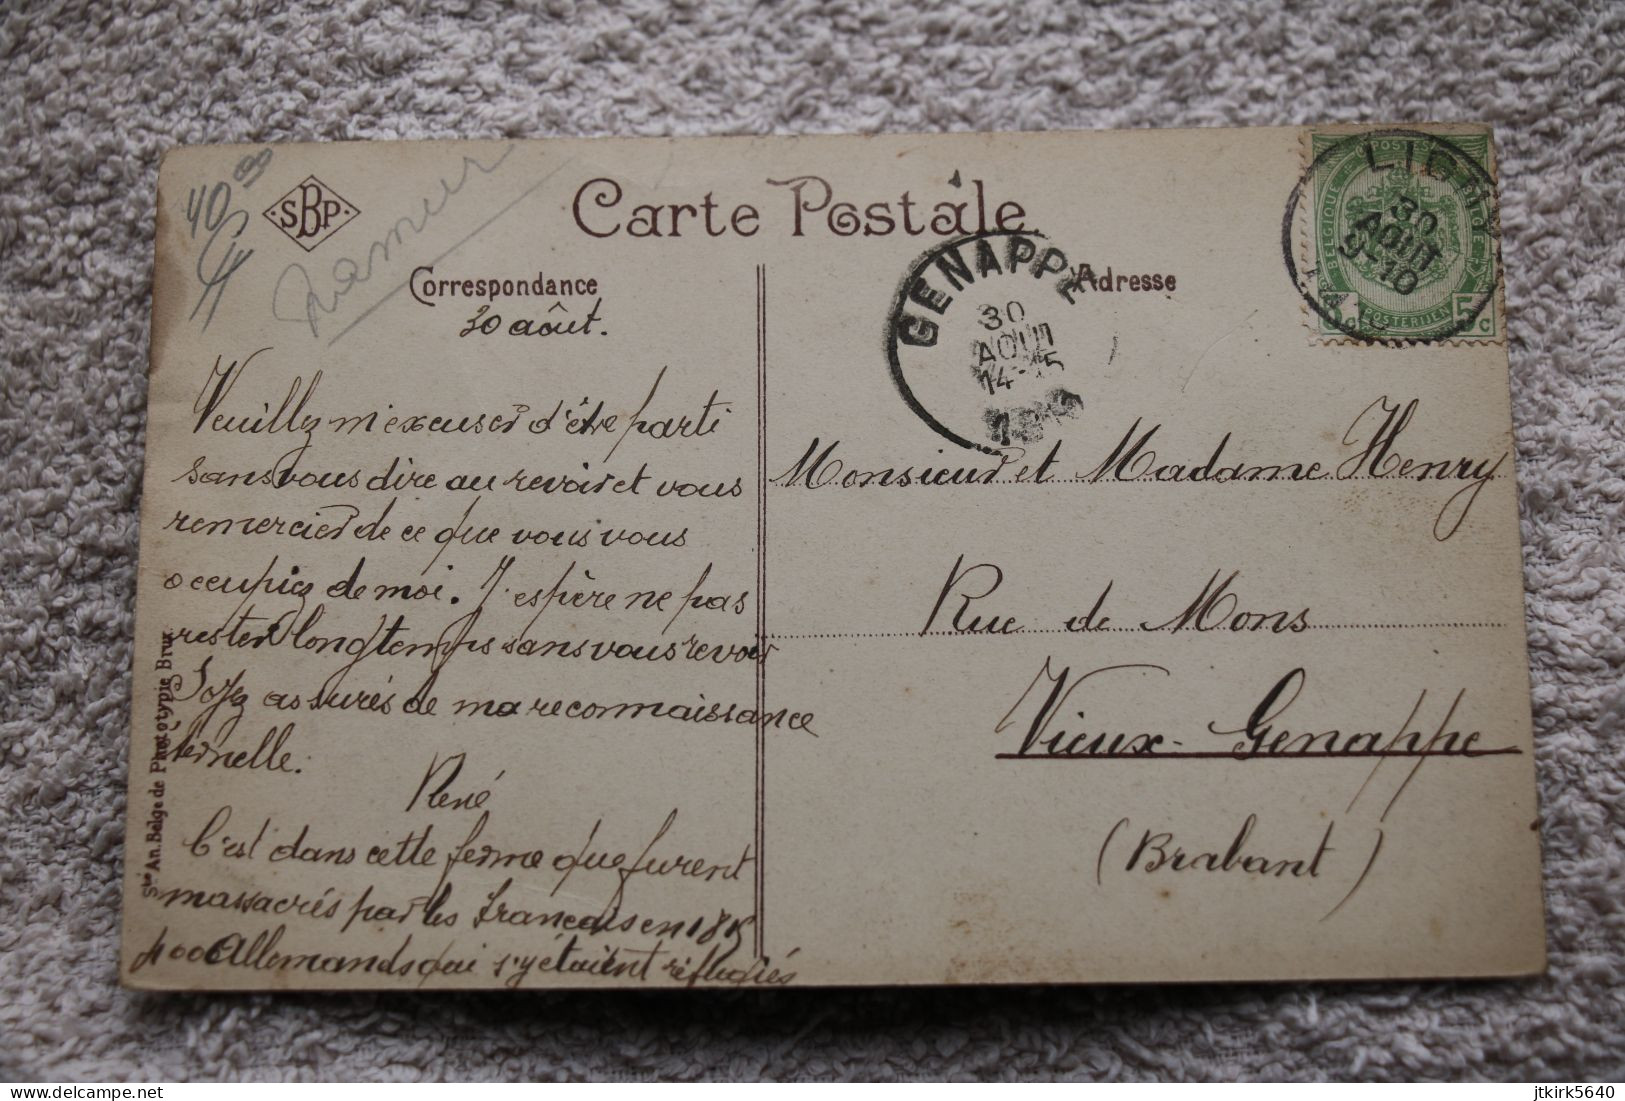 40,00
Namur
SBP
Carte Postale
Correspondance
30 août.
Veuillez m'excuser d'être parti
sans vous dire au revoir et vous
remercier de ce que vous vous
occupiez de moi. J'espère ne pas
rester longtemps sans vous revoir
Soyez assurés de ma reconnaissance
éternelle.
René
C'est dans cette ferme que furent
massacrés par les Français en 1815
400 Allemands qui s'y étaient réfugiés
Sté An. Belge de Phototypie Brux.
GENAPPE
30
AOUT
14-15
Adresse
LIGNY
30
AOUT
9-10
POSTES
BELGIQUE
POSTERIJEN
5c
Monsieur et Madame Henry
Rue de Mons
Vieux-Genappe
(Brabant)
delcampe.net
jtkirk5640